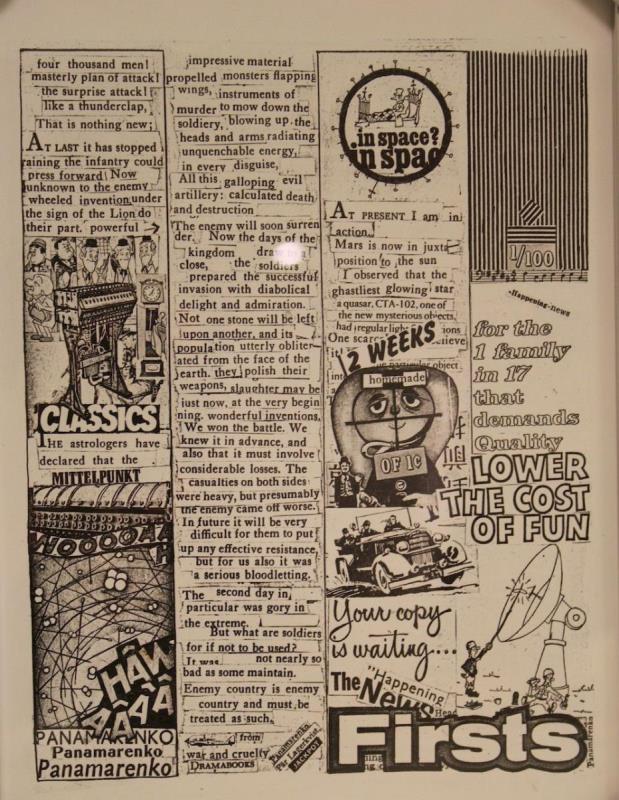 four thousand men!
masterly plan of attack!
the surprise attack!
like a thunderclap,
That is nothing new;
AT LAST it has stopped
raining the infantry could
press forward Now
unknown to the enemy
wheeled invention under
the sign of the Lion do
their part. powerful
CLASSICS
THE astrologers have
declared that the
MITTELPUNKT
WOOOOAA
HÂW
ÂÂÂ
PANAMARENKO
Panamarenko
Panamarenko
impressive material
propelled monsters flapping
wings, instruments of
murder to mow down the
soldiery, blowing up the
heads and arms radiating
unquenchable energy,
in every disguise,
All this galloping evil
artillery: calculated death
and destruction
The enemy will soon surren
der. Now the days of the
kingdom draw to a
close, the soldiers
prepared the successful
invasion with diabolical
delight and admiration.
Not one stone will be left
upon another, and its
population utterly obliter
ated from the face of the
earth. they polish their
weapons, slaughter may be
just now, at the very begin
ning. wonderful inventions,
We won the battle. We
knew it in advance, and
also that it must involve
considerable losses. The
casualties on both sides
were heavy, but presumably
the enemy came off worse.
In future it will be very
difficult for them to put
up any effective resistance,
but for us also it was
a serious bloodletting.
The second day in
particular was gory in
the extreme.
But what are soldiers
for if not to be used?
It was not nearly so
bad as some maintain.
Enemy country is enemy
country and must be
treated as such.
from
war and cruelty
DRAMABOOKS
Panamarenko
Pär Lagerkvist
JACKPOT
in space?
in spac
AT PRESENT I am in
action.
Mars is now in juxta
position to the sun
I observed that the
ghastliest glowing star
a quasar, CTA-102, one of
the new mysterious objects,
had regular light ions
One scarc elieve
2 WEEKS
object
homemade
OF 1c
Your copy
is waiting...
The "Happening
News
Firsts
1/100
Happening-news
for the
1 family
in 17
that
demands
Quality
LOWER
THE COST
OF FUN
Panamarenko